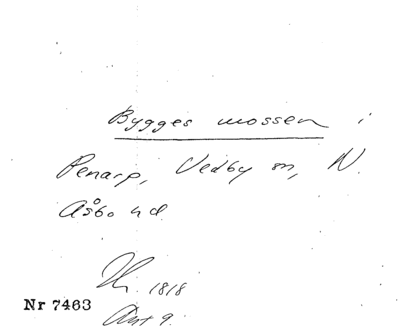 Bygges mossen i
Penarp, Vedby sn, N.
Åsbo hd.
1818
Nr 7463
Akt 9.